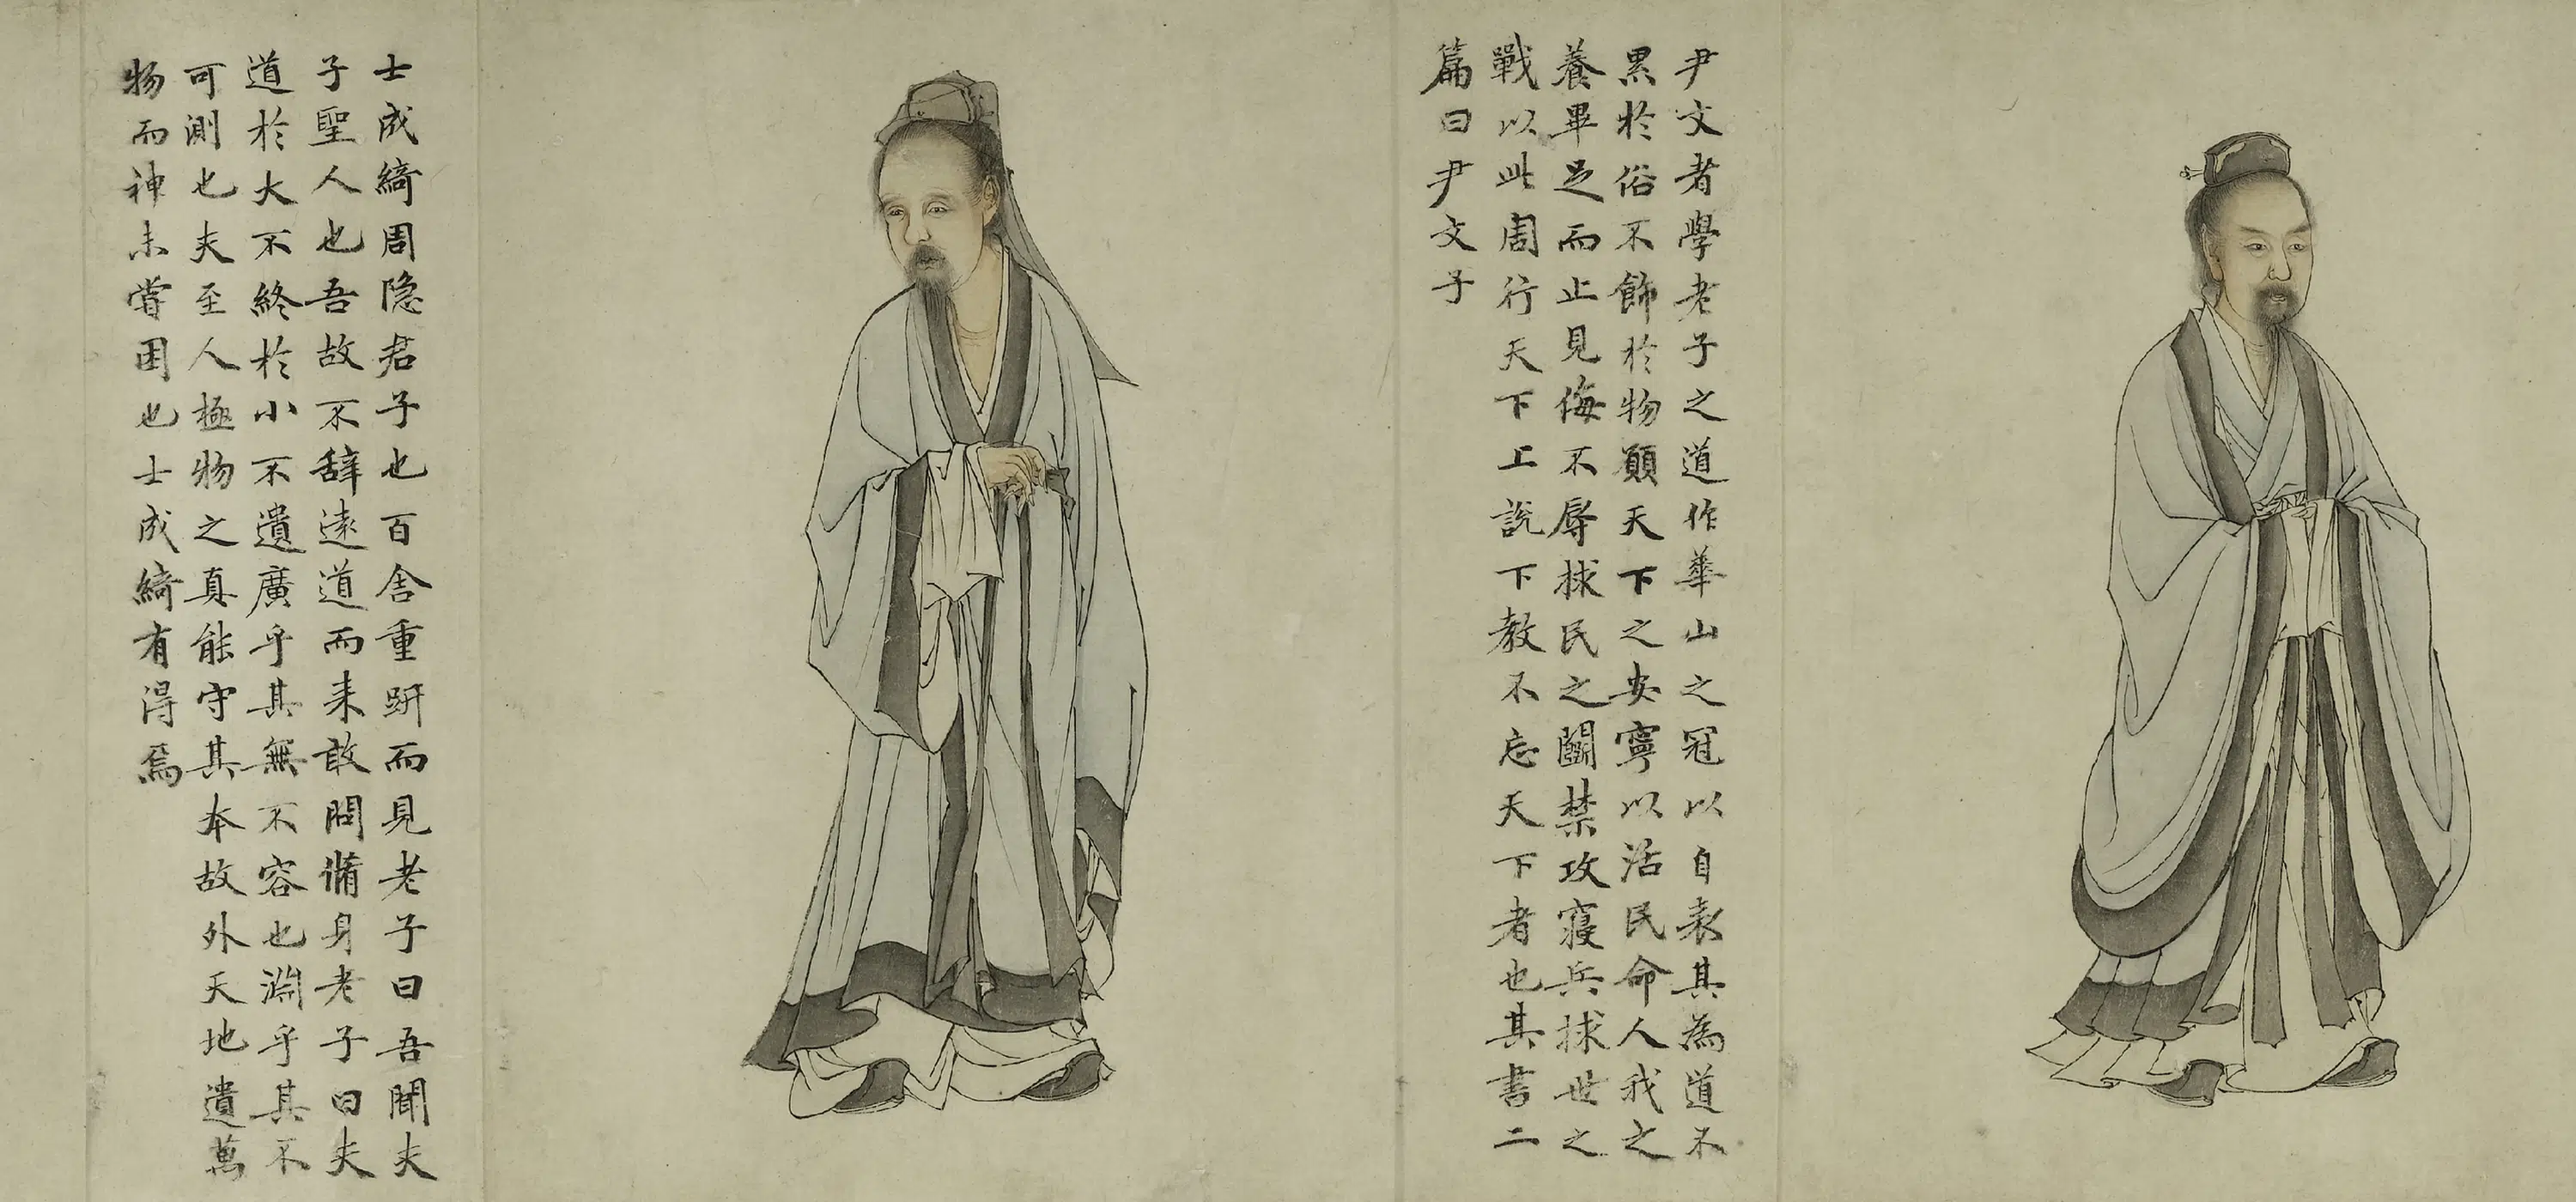 尹文者學老子之道作華山之冠以自表其為道不
累於俗不飾於物願天下之安寧以活民命人我之
養畢足而止見侮不辱捄民之鬬禁攻寢兵捄世之
戰以此周行天下上說下教不忘天下者也其書二
篇曰尹文子
士成綺周隐君子也百舍重趼而見老子曰吾聞夫
子聖人也吾故不辭遠道而来敢問脩身老子曰夫
道於大不終於小不遺廣乎其無不容也淵乎其不
可測也夫至人極物之真能守其本故外天地遺萬
物而神未嘗困也士成綺有得焉